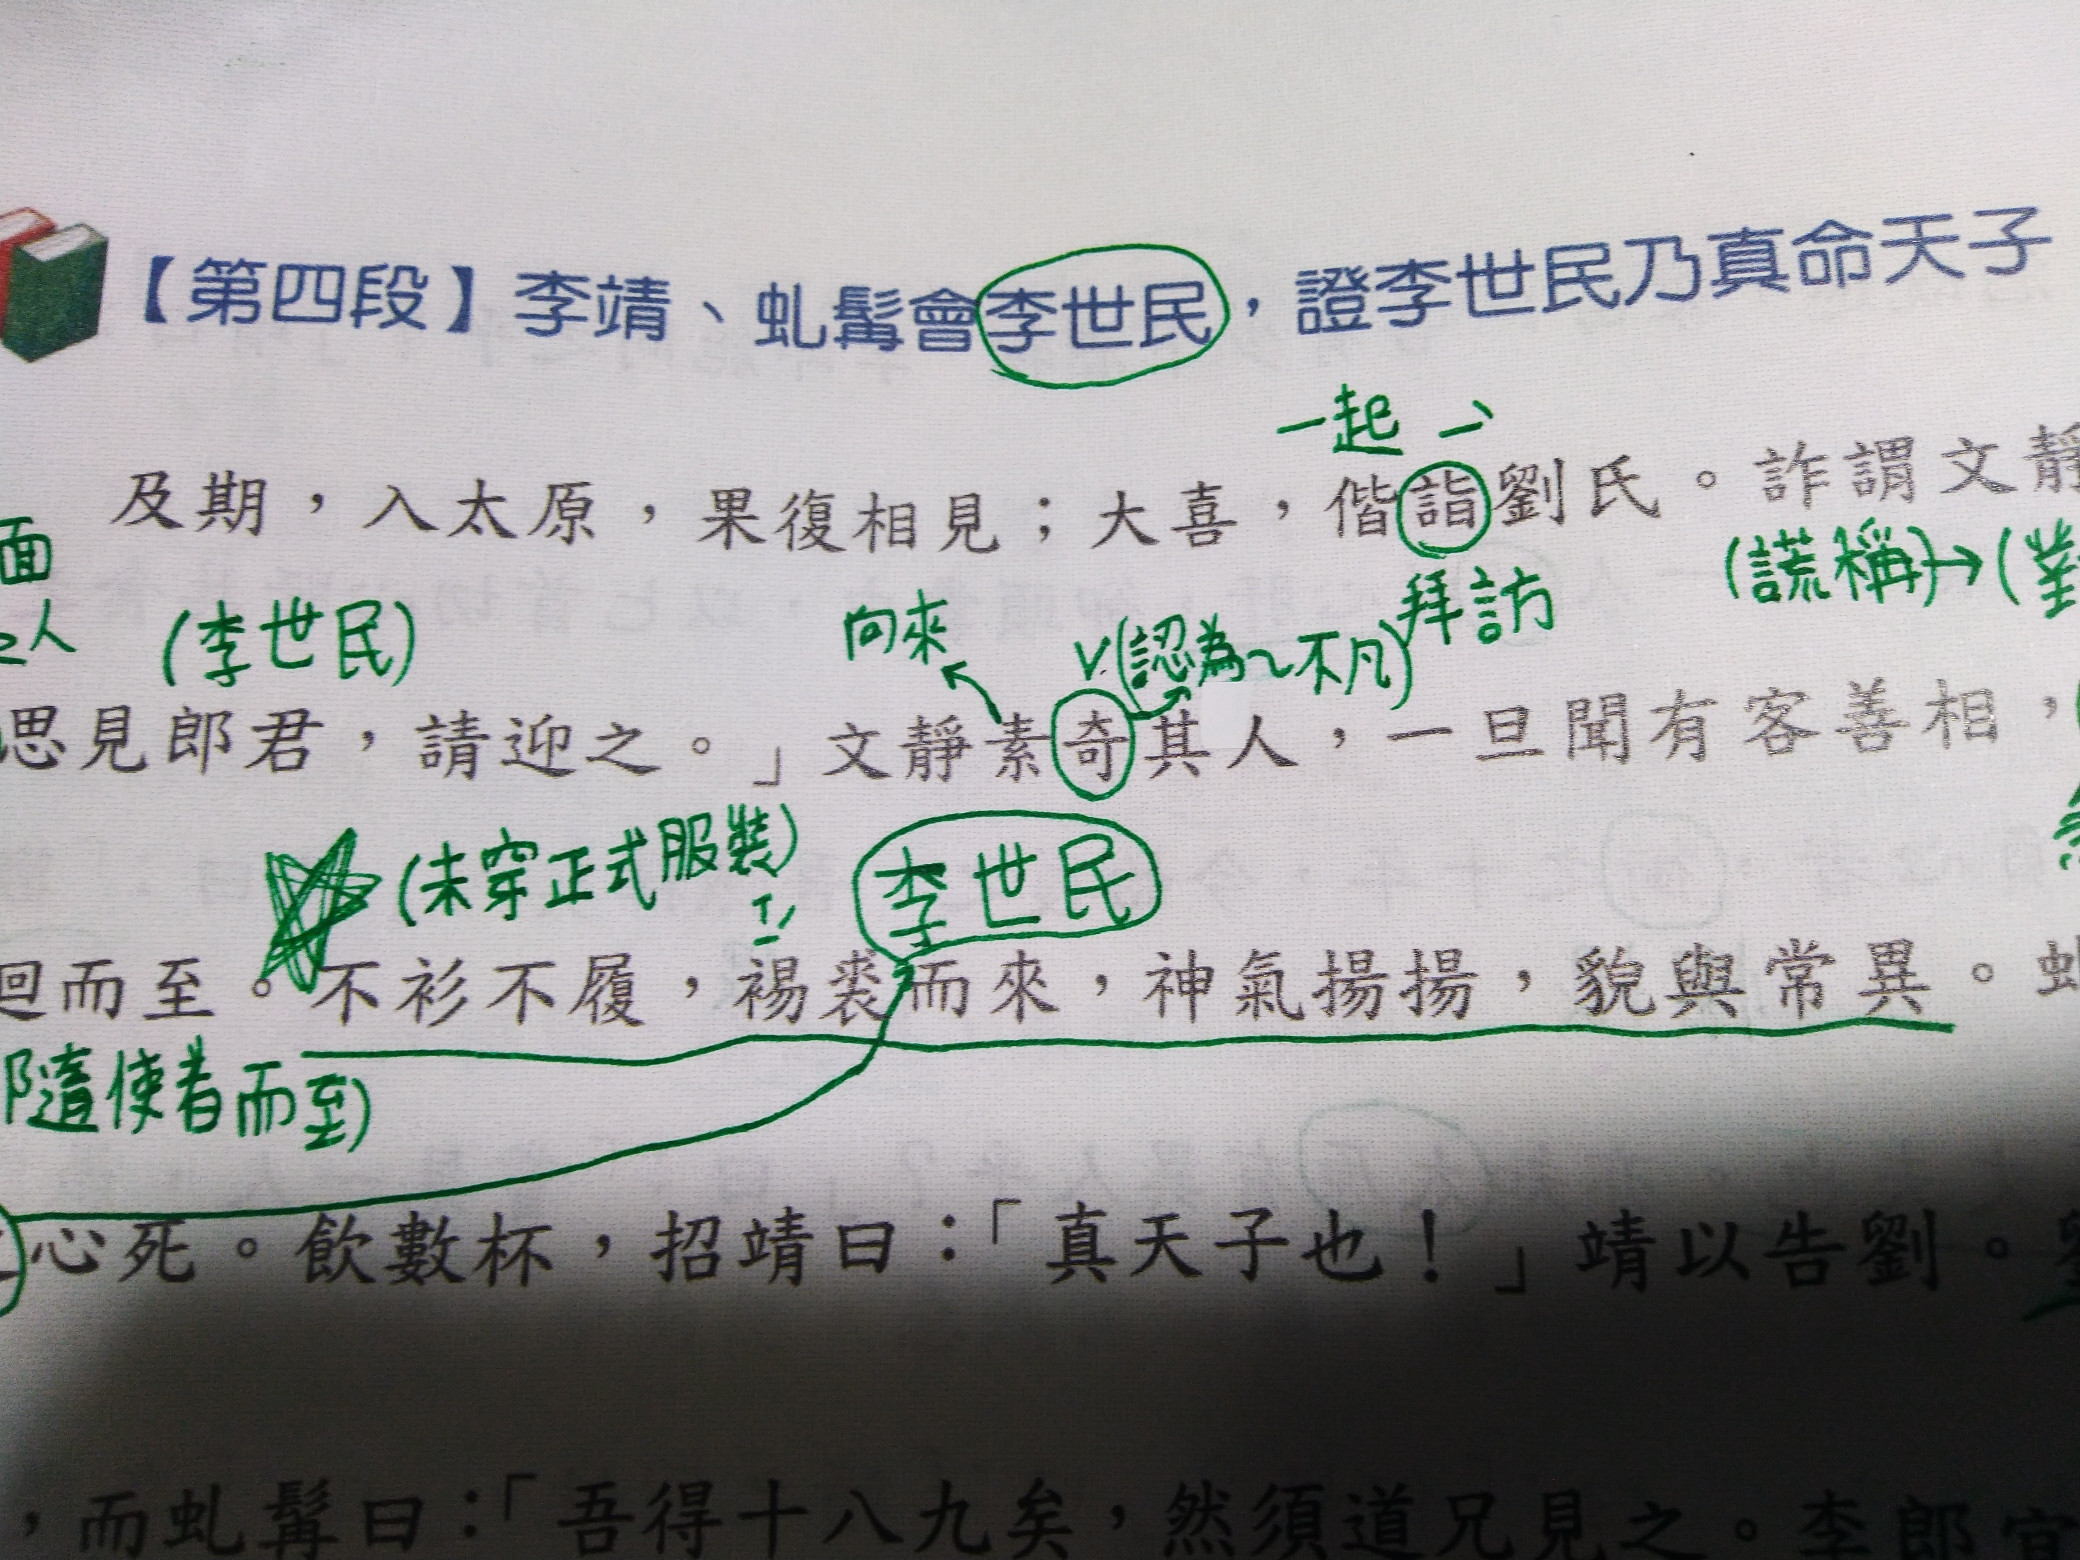 【第四段】李靖、虬髯會李世民，證李世民乃真命天子
一起
及期，入太原，果復相見；大喜，偕詣劉氏。詐謂文靜
面
(謊稱)→(對
拜訪
之人
(李世民)
向來
V(認為～不凡)
思見郎君，請迎之。」文靜素奇其人，一旦聞有客善相，
(未穿正式服裝)
李世民
迴而至。不衫不履，裼裘而來，神氣揚揚，貌與常異。虬
隨使者而至)
心死。飲數杯，招靖曰：「真天子也！」靖以告劉。劉
，而虬髯曰：「吾得十八九矣，然須道兄見之。李郎宜